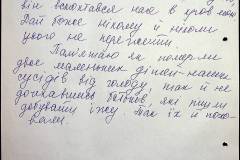 він вскоктався нас в урвол
Дай боже ніколи й ніком
цього не пережити.
Пам'ятаю як померли
двоє маленьких дітей-наших
сусідів від голоду, так й не
дочекавшись батьків, які пішли
добувати їжу. Так їх и похо-
вали.